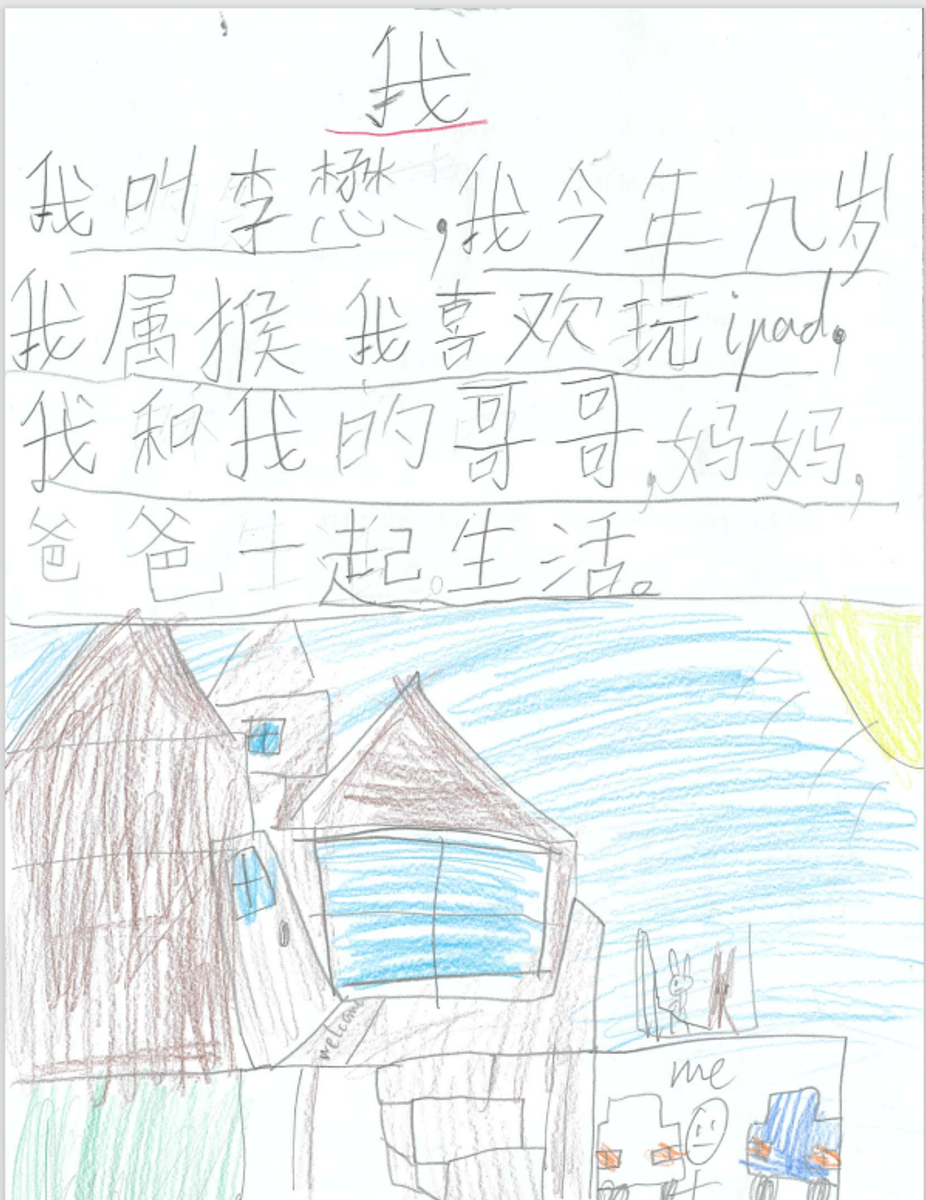 我
我叫李懋,我今年九岁
我属猴 我喜欢玩ipad,
我和我的哥哥,妈妈,
爸爸士起。生活。
welcome
me